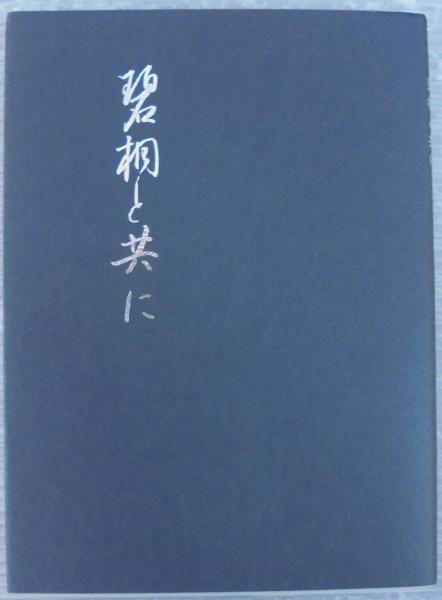 碧桐と共に